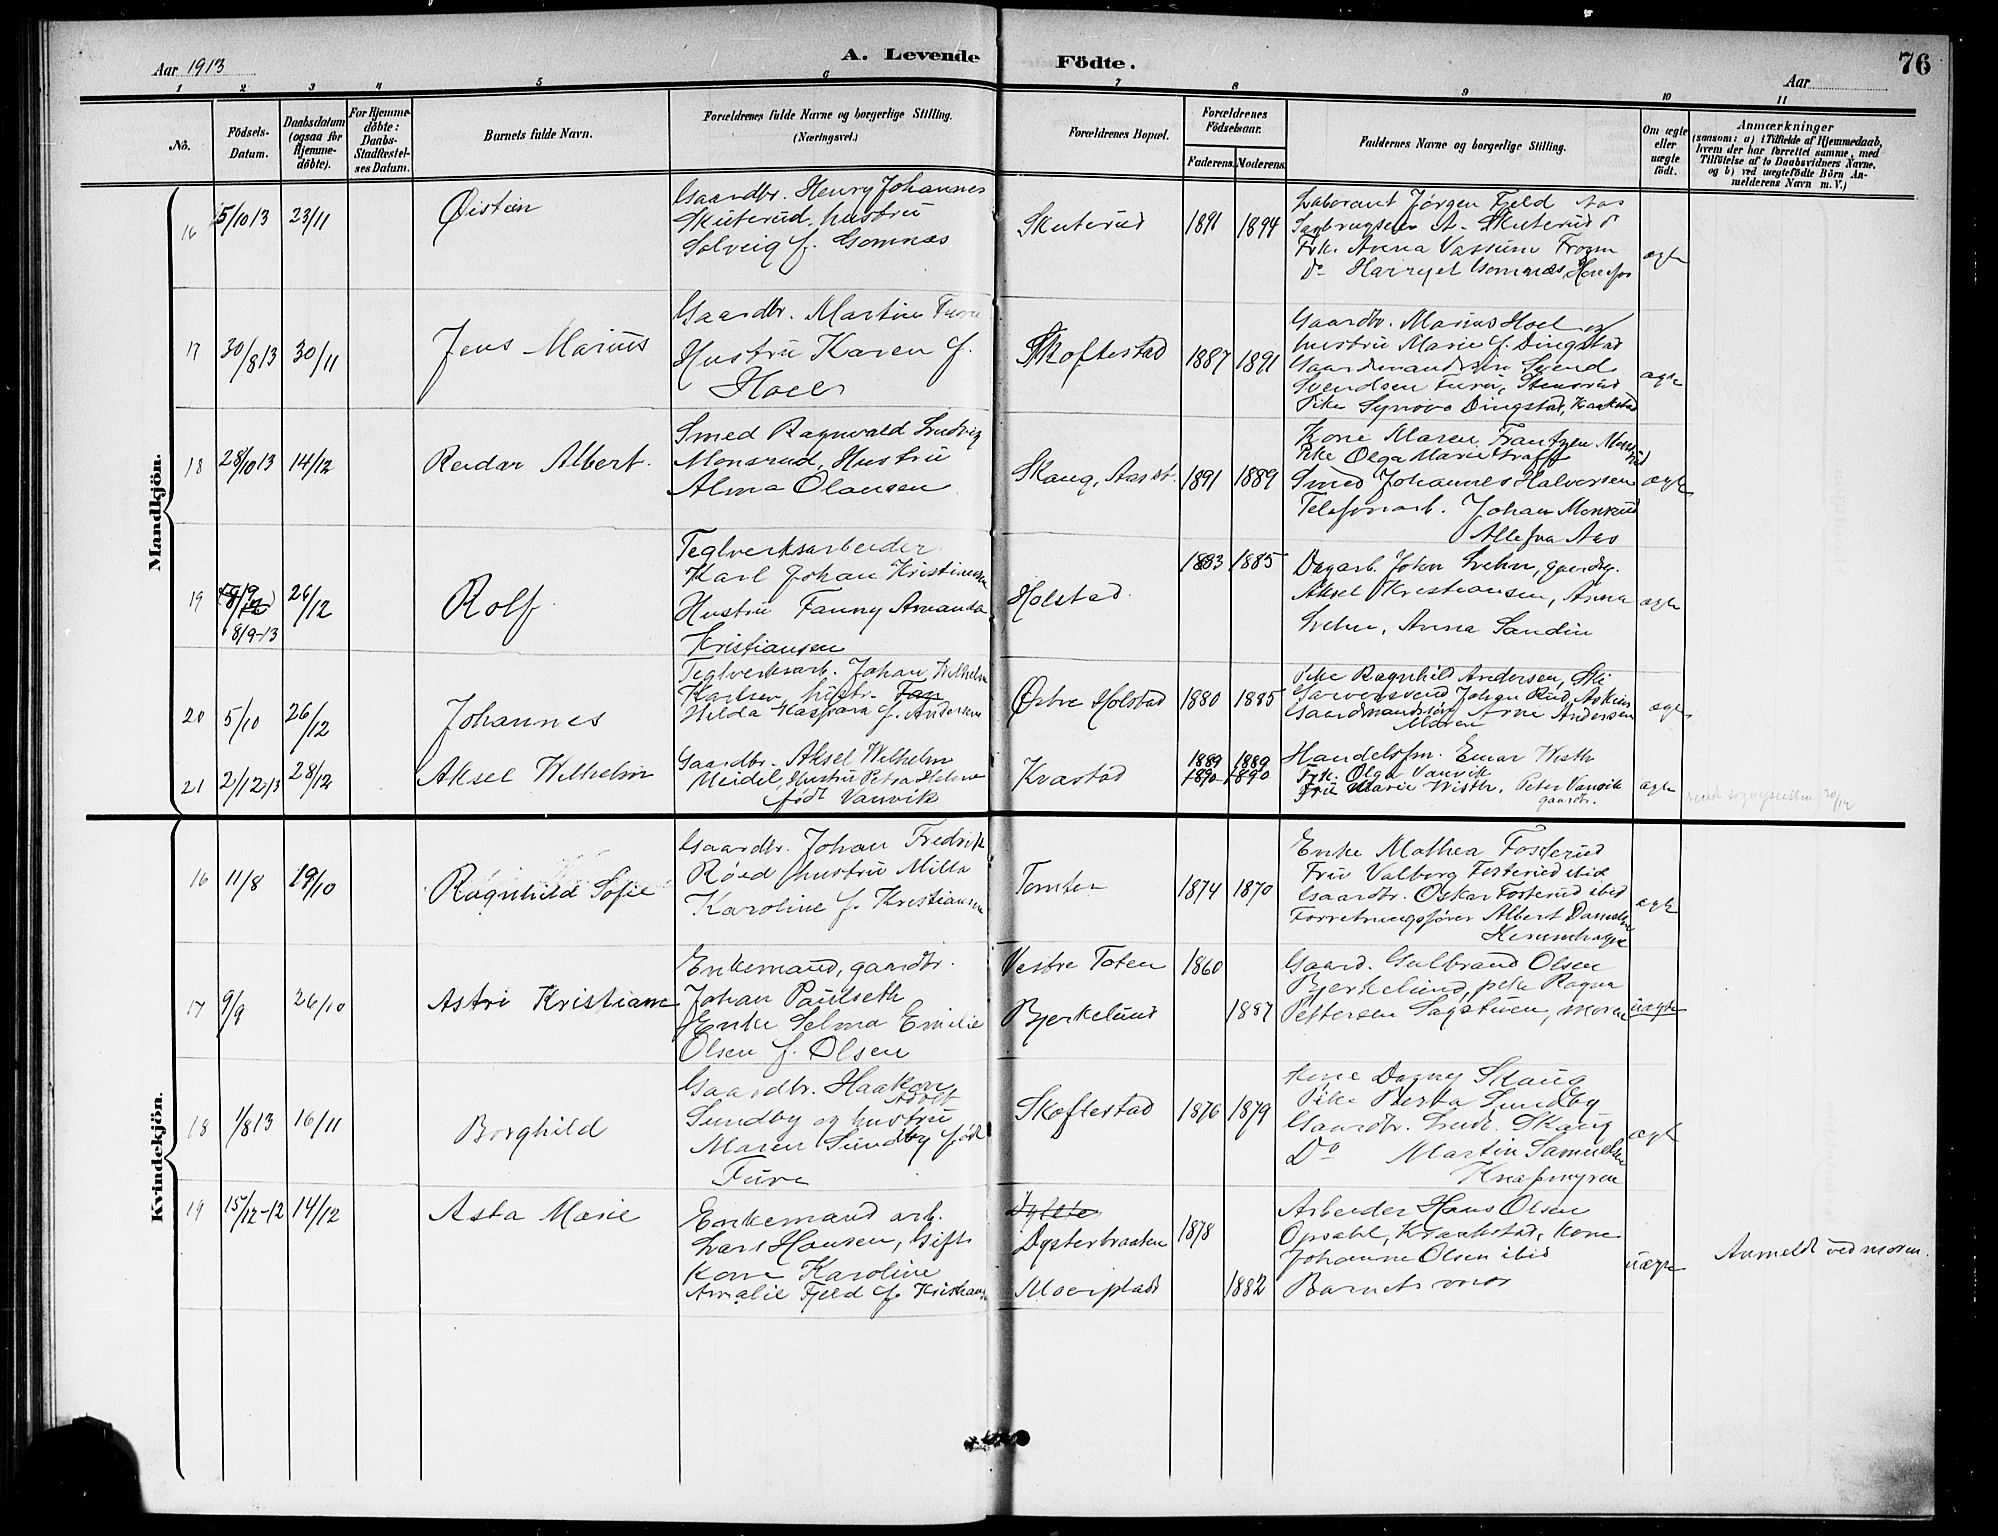 Aar 1913
A. Levende Födte.
76
Aar
1 2 3 4 5 6 7 8 9 10 11
No.
Födsels-Datum.
Daabsdatum (ogsaa for Hjemmedöbte).
For Hjemmedöbte: Daabs-Stadfæstelses Datum.
Barnets fulde Navn.
Forældrenes fulde Navne og borgerlige Stilling. (Næringsvei.)
Forældrenes Bopæl.
Forældrenes Födselsaar.
Faderens. Moderens.
Faddernes Navne og borgerlige Stilling.
Om ægte eller uægte födt.
Anmærkninger
(saasom: a) i Tilfælde af Hjemmedaab, hvem der har forrettet samme, med Tilföielse af to Daabsvidners Navne, og b) ved uægtefödte Börn Anmelderens Navn m. V.)
Mandkjön.
16 5/10 13 23/11
Øistein
Gaardbr. Henry Johannes
Skuterud, hustru
Solveig f. Gomnæs
Skuterud
1891 1894
Laborant Jørgen Fjeld Aas
A. Skuterud
Frk. Anna Vassum Frogn
Do Harryet Gomnæs,
ægte
17 30/8 13 30/11
Jens Marius
Gaardbr. Martin Furu
Hustru Karen f.
Hoel
Skoftestad
1887 1891
Gaardbr. Marius Hoel og
hustru Marie f. Dingstad
Gaardmandssøn Svend
Svendsen Furu, Stensrud
Pike Synøve Dingstad, Kraakstad
ægte
18 28/10 13 14/12
Reidar Albert.
Smed Ragnvald Ludvig
Monsrud, Hustru
Alma Olausen
Skaug, Aas st.
1891 1889
Kone Maren Frantzen
Pike Olga Marie
Smed Johannes Halvorsen
Telefonarb. Johan Monsrud
Alle fra Aas
ægte
19 8/9-13 26/12
Rolf
Teglverksarbeider
Karl Johan Kristiansen
Hustru Fanny Amanda
Kristiansen
Holstad
1883 1885
Dagarb. John Svehn, gaardbr.
Aksel Kristiansen, Anna
Svehn, Anna Sandin
ægte
20 5/10 26/12
Johannes
Teglverksarb. Johan Wilhelm
Karlsen, hustr. Fan
Hilda Kaspara f. Andersen
Østre Holstad
1880 1885
Pike Ragnhild Andersen, Ski
Garversvend Johan Rud, Askim
Gaardmandssøn Arne Andersen
Moren
ægte
21 2/12 13 28/12
Aksel Wilhelm
Gaardbr. Aksel Wilhelm
Meidel, Hustru Petra Helene
født Vanvik
Krastad
1889 1889
1890 1890
Handelsfm. Einar Wisth
Frk. Olga Vanvik
Fru Marie Wisth, Peter Vanvik
gaardbr.
ægte
Kvindekjön.
16 11/8 19/10
Ragnhild Sofie
Gaardbr. Johan Fredrik
Røed hustru Milla
Karoline f. Kristiansen
Tomter
1874 1870
Enke Mathea Fosterud
Fru Valborg Fosterud ibid
Gaardbr. Oskar Fosterud ibid
Forretningsfører Albert
ægte
17 9/9 26/10
Astri Kristiane
Enkemand, gaardbr.
Johan Paulseth
Enke Selma Emilie
Olsen f. Olsen
Vestre Toten 1860
Bjerkelund 1887
Gaard. Gulbrand Olsen
Bjerkelund, pike Ragna
Pettersen Sagstuen, moren
uægte
18 1/8 13 16/11
Borghild
Gaardbr. Haakon
Adolf
Sundby og hustru
Maren Sundby født
Furu
Skoftestad
1876 1879
Kone Dagny Skaug
Pike Berta Sundby
Gaardbr. Ludv. Skaug
Do Martin Samuelsen
Knapmyren
ægte
19 15/12-12 14/12
Asta Marie
Enkemand arb.
Lars Hansen, Gift
Kone Karoline
Amalie Fjeld f. Kristiansen
Dysterbraaten 1878
Moerplads 1882
Arbeider Hans Olsen
Opsahl, Kraakstad, Kone
Johanne Olsen ibid
Barnets mor
uægte
Anmeldt ved moren.